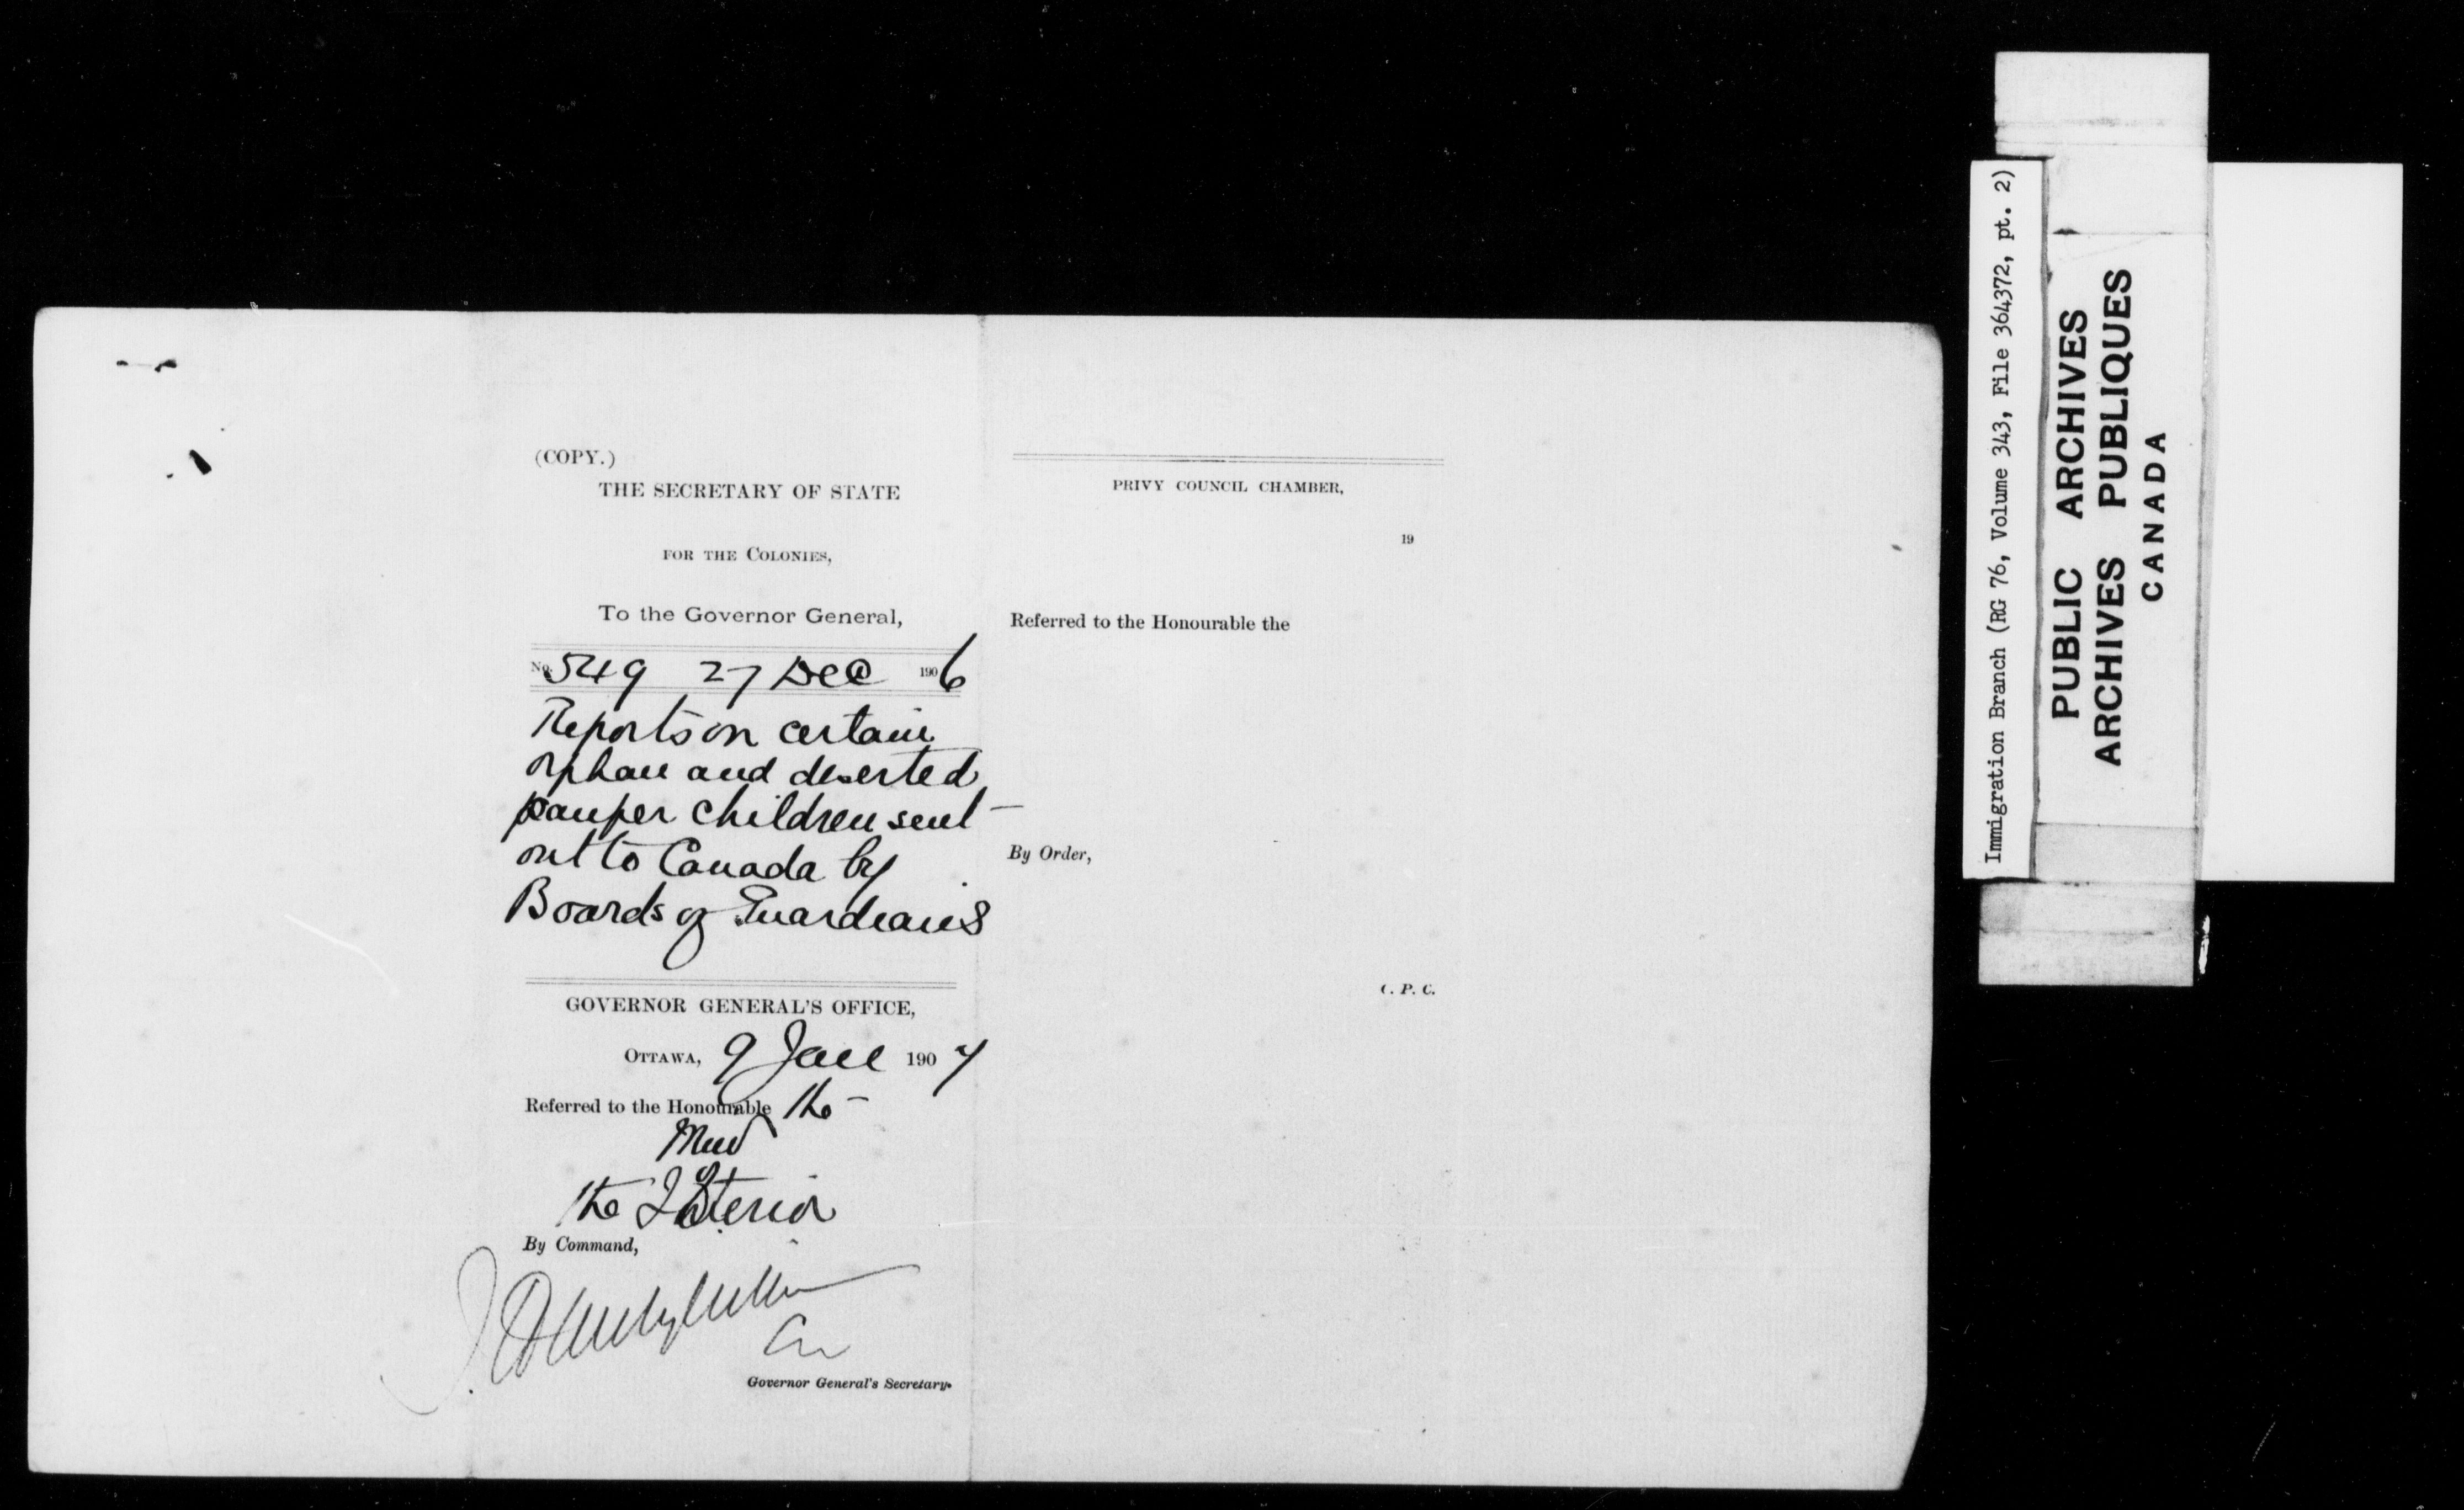 (COPY.)
THE SECRETARY OF STATE
FOR THE COLONIES,
To the Governor General,
No. 549 27 Dec 1906
Reports on certain
orphan and deserted
pauper children sent
out to Canada by
Boards of Guardians
GOVERNOR GENERAL'S OFFICE,
OTTAWA, 9 Jan 1907
Referred to the Honourable the
the Interior
By Command,
Governor General's Secretary.
PRIVY COUNCIL CHAMBER,
19
Referred to the Honourable the
By Order,
C. P. C.
Immigration Branch (RG 76, Volume 343, File 364372, pt. 2)
PUBLIC ARCHIVES
ARCHIVES PUBLIQUES
CANADA